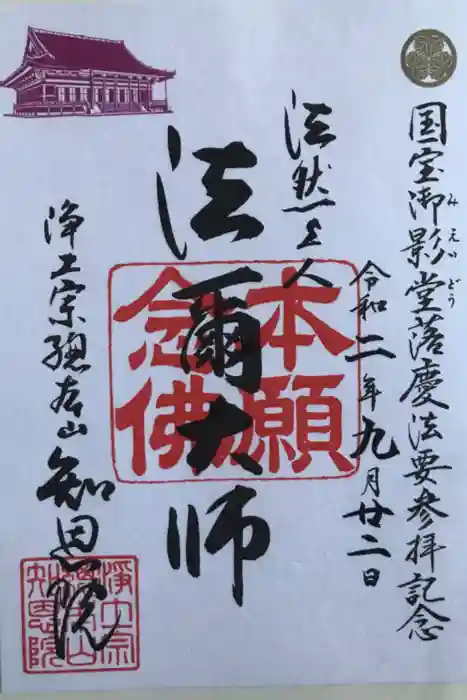 国宝御影堂落慶法要参拝記念
みえいどう
令和二年九月廿二日
法然上人
法爾大師
本願
念佛
浄土宗總本山
知恩院
浄土宗
總本山
知恩院